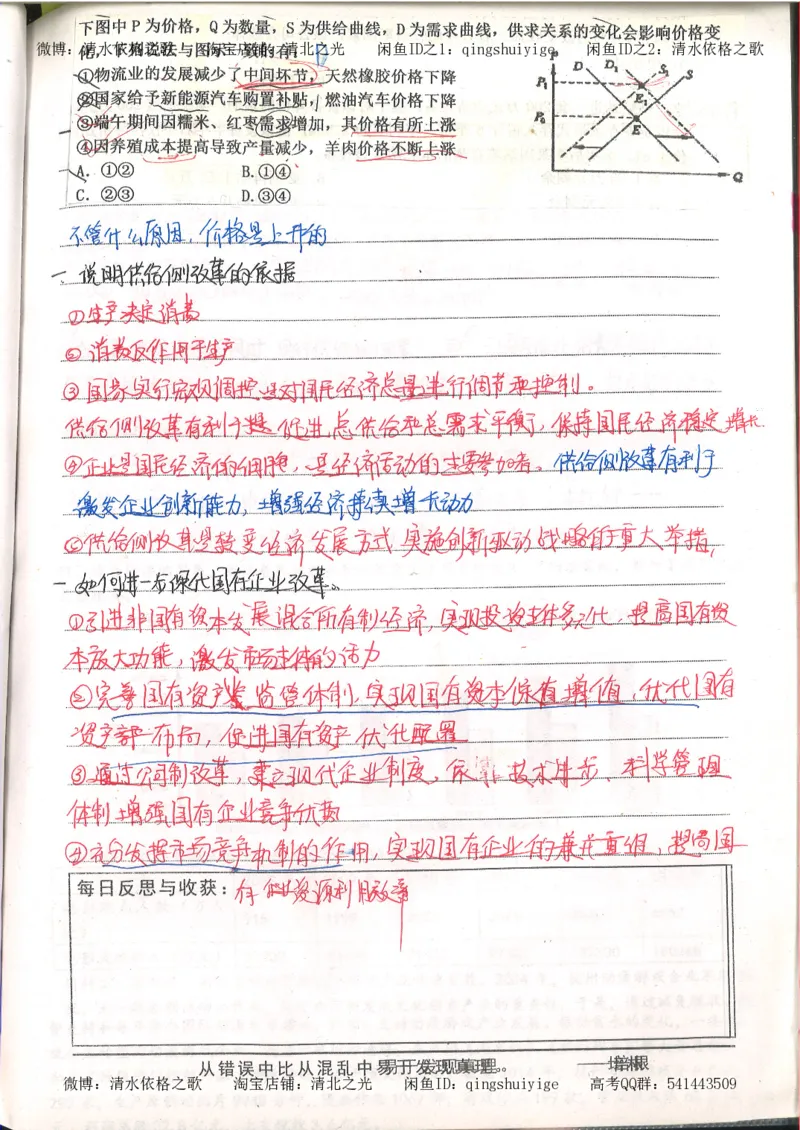 下图中P为价格，Q为数量，S为供给曲线，D为需求曲线，供求关系的变化会影响价格变
化，下列说法与图示一致的有
微博：清水依格之歌 淘宝店铺：清北之光 闲鱼ID之1：qingshuiyige 闲鱼ID之2：清水依格之歌
①物流业的发展减少了中间环节，天然橡胶价格下降
②国家给予新能源汽车购置补贴，燃油汽车价格下降
③端午期间因糯米、红枣需求增加，其价格有所上涨
④因养殖成本提高导致产量减少，羊肉价格不断上涨
A. ①② B.①④
C. ②③ D.③④
P D D₁ S₁ S
P₁ E₁
P₀ E
Q
不管什么原因，价格是上升的
一、说明供给侧改革的依据
①生产决定消费
②消费反作用于生产
③国家实行宏观调控是对国民经济总量进行调节和控制。
供给侧改革有利于促进总供给和总需求平衡，保持国民经济稳定增长
④企业是国民经济的细胞，是经济活动的主要参加者。供给侧改革有利于
激发企业创新能力，增强经济持续增长动力
⑥供给侧改革是转变经济发展方式 实施创新驱动战略的重大举措，
一 如何进一步深化国有企业改革。
①引进非国有资本发展混合所有制经济，实现投资主体多元化，提高国有资
本放大功能，激发市场主体的活力
②完善国有资产监管体制，实现国有资本保值增值，优化国有
资产布局，促进国有资产优化配置
③通过公司制改革，建立现代企业制度，依靠技术进步、科学管理
体制增强国有企业竞争优势
④充分发挥市场竞争机制的作用，实现国有企业的兼并重组，提高国
每日反思与收获：有企业资源利用效率
从错误中比从混乱中易于发现真理。 ——培根
微博：清水依格之歌 淘宝店铺：清北之光 闲鱼ID：qingshuiyige 高考QQ群：541443509